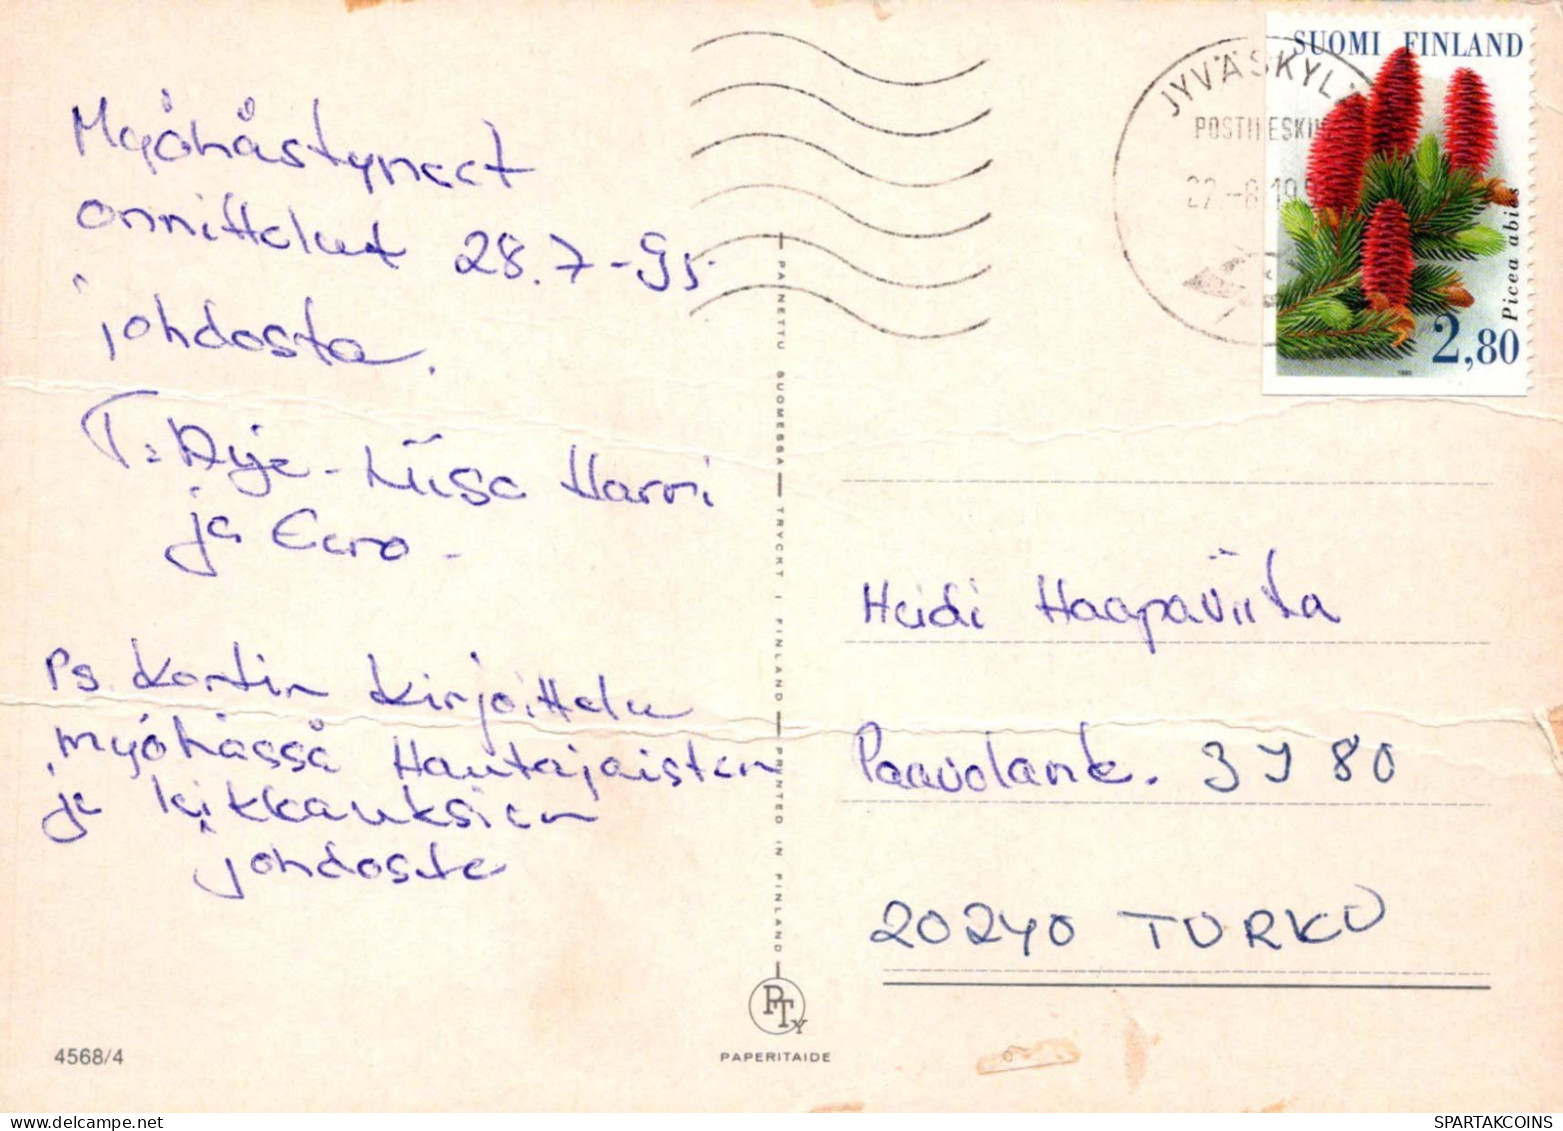 Myöhästyneet
onnittelut 28.7-95
johdosta.
T: Aija-Liisa Harri
ja Eero.
Ps. Kortin kirjoittelu
myöhässä Hautajaisten
ja leikkauksien
johdosta
4568/4
PAINETTU SUOMESSA — TRYCKT I FINLAND — PRINTED IN FINLAND
PTy
PAPERITAIDE
JYVÄSKYL
POSTIKESKU
22.-8.19
SUOMI FINLAND
Picea abies
2,80
1995
Heidi Haapaviita
Paavolank. 3 J 80
20240 TURKU
SPARTAKCOINS